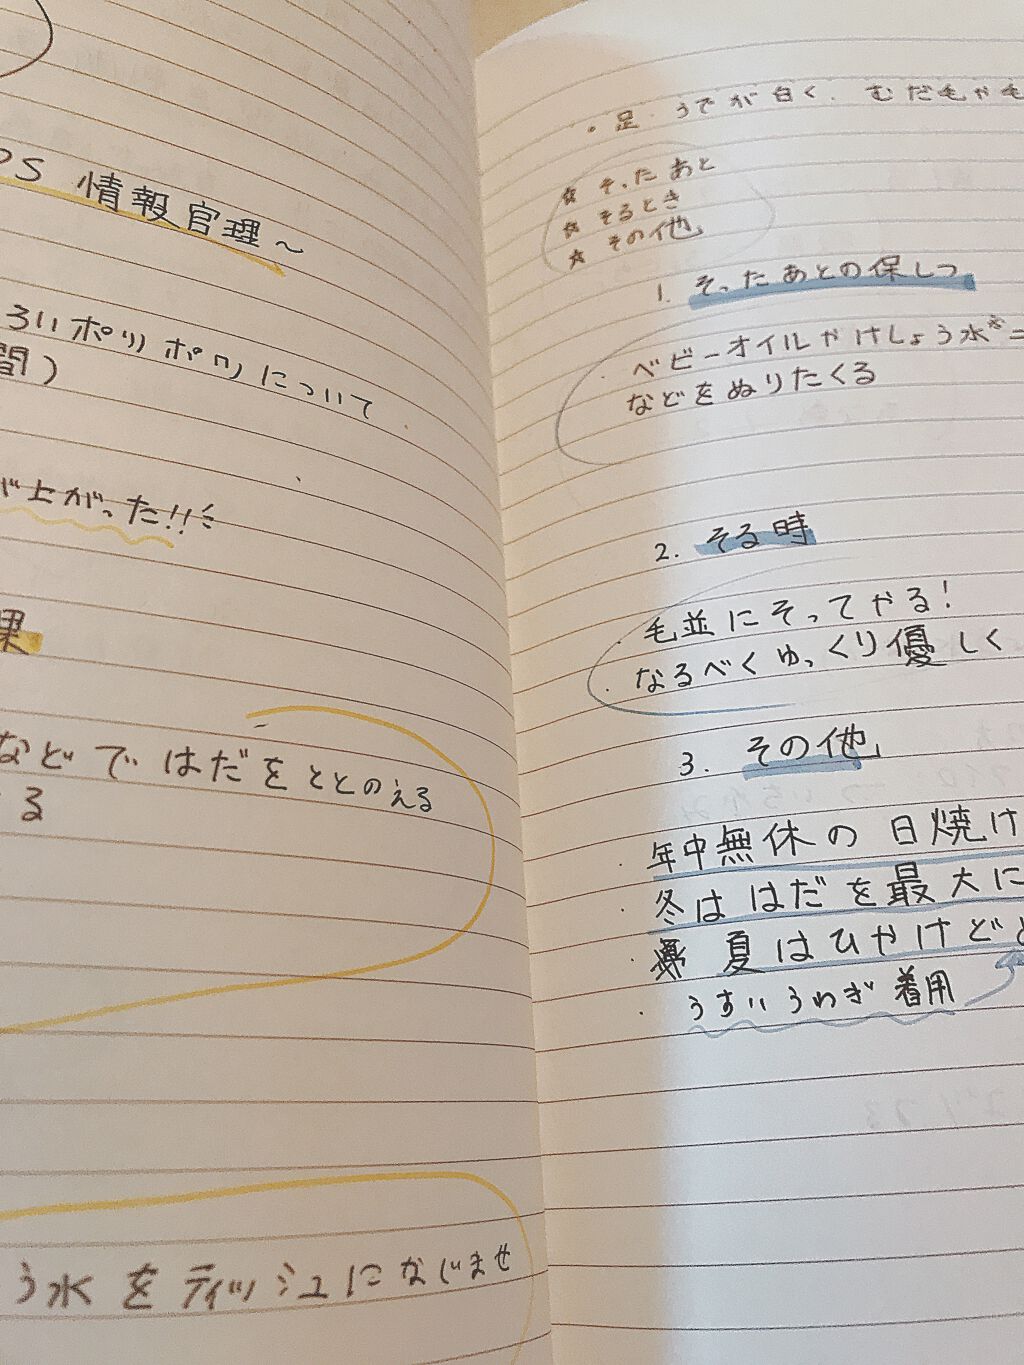 PS 情報官理～
ろいポツポツについて
間)
が上がった!!
果
などで はだを ととのえる
る
う水 を ティッシュに なじませ
・足・うでが白く、むだ毛や毛
☆ そったあと
☆ そるとき
☆ その他
1. そったあとの保しつ
・ベビーオイルやけしょう水
などをぬりたくる
2. そる時
・毛並にそってやる!
・なるべくゆっくり優しく
3. その他
・年中無休の 日焼け
・冬は はだを最大に
夏はひやけどと
・うすいうわぎ 着用